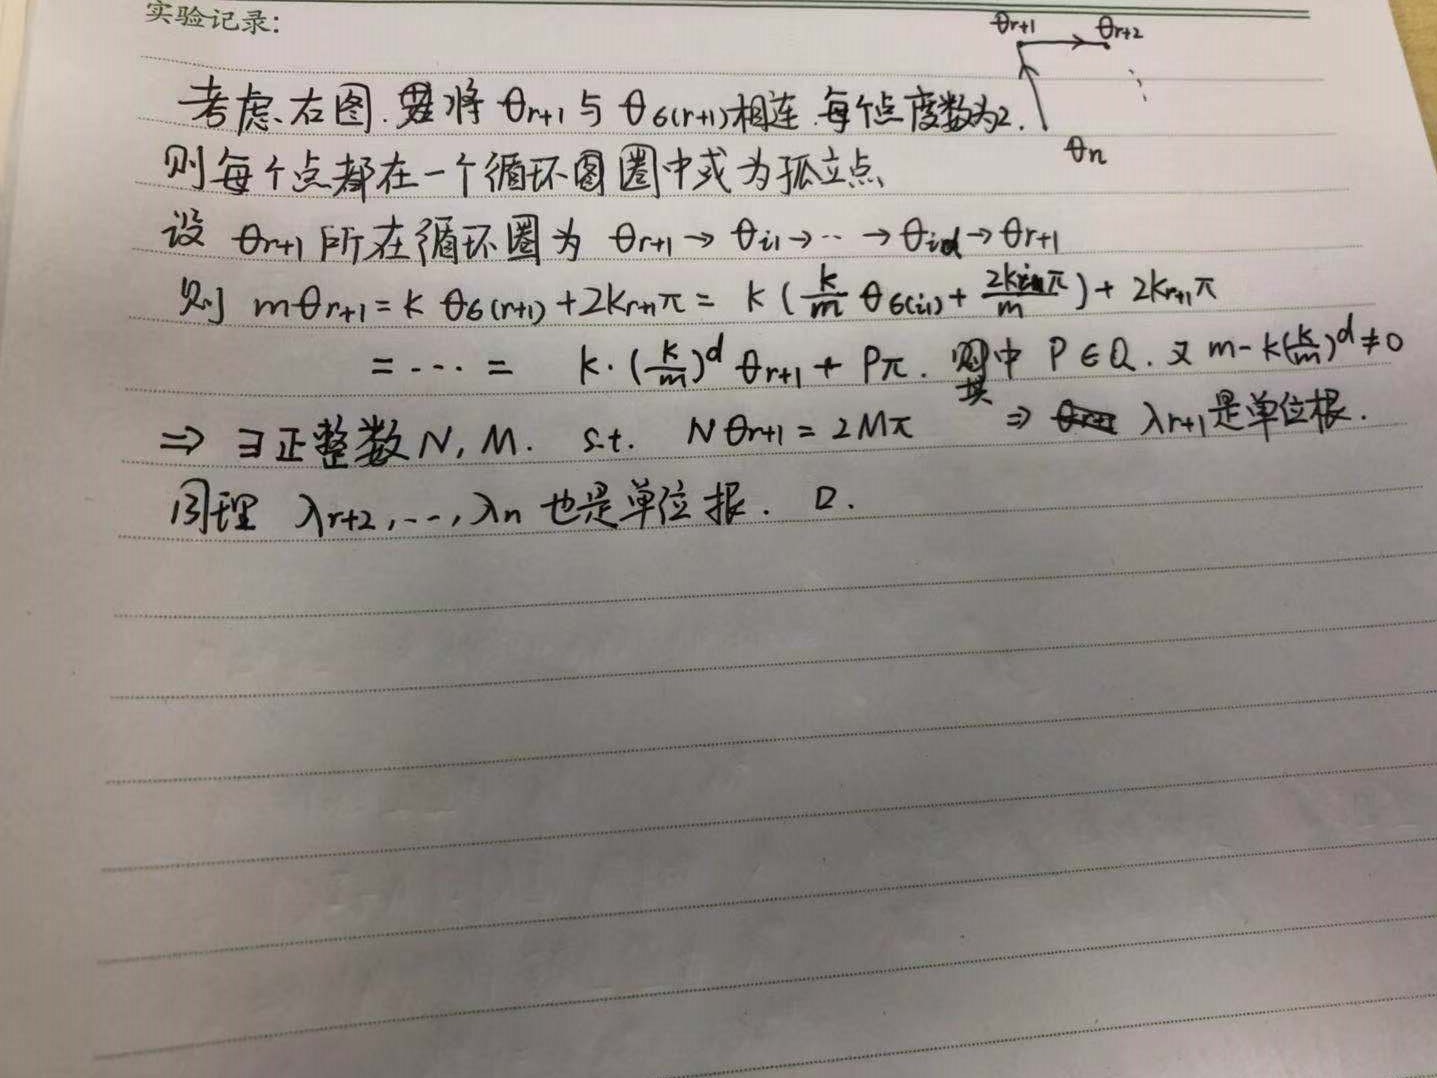 实验记录:
θr+1 θr+2
θn
考虑右图.将 θr+1 与 θ6(r+1)相连.每个点度数为2.
则每个点都在一个循环圈中或为孤立点
设 θr+1 所在循环圈为 θr+1 → θi1 → ‥ → θid → θr+1
则 mθr+1 = k θ6(r+1) + 2kr+1π = k (k/m θ6(i1) + 2ki1π/m) + 2kr+1π
= ‥‥ = k·(k/m)^d θr+1 + Pπ. 其中 P∈Q. 又 m-k(k/m)^d≠0
⇒ ∃正整数 N, M. s.t. Nθr+1 = 2Mπ ⇒ λr+1 是单位根.
同理 λr+2, ---, λn 也是单位根. □.